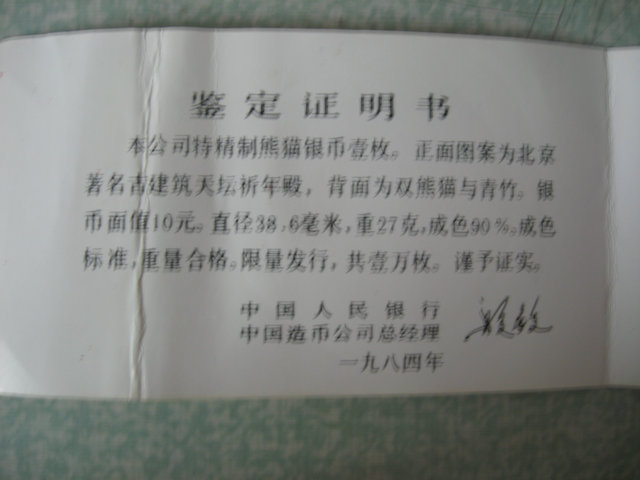 鉴定证明书
本公司特精制熊猫银币壹枚。正面图案为北京
著名古建筑天坛祈年殿，背面为双熊猫与青竹。银
币面值10元。直径38.6毫米，重27克，成色90%。成色
标准，重量合格。限量发行，共壹万枚。谨予证实。
中国人民银行
中国造币公司总经理
一九八四年